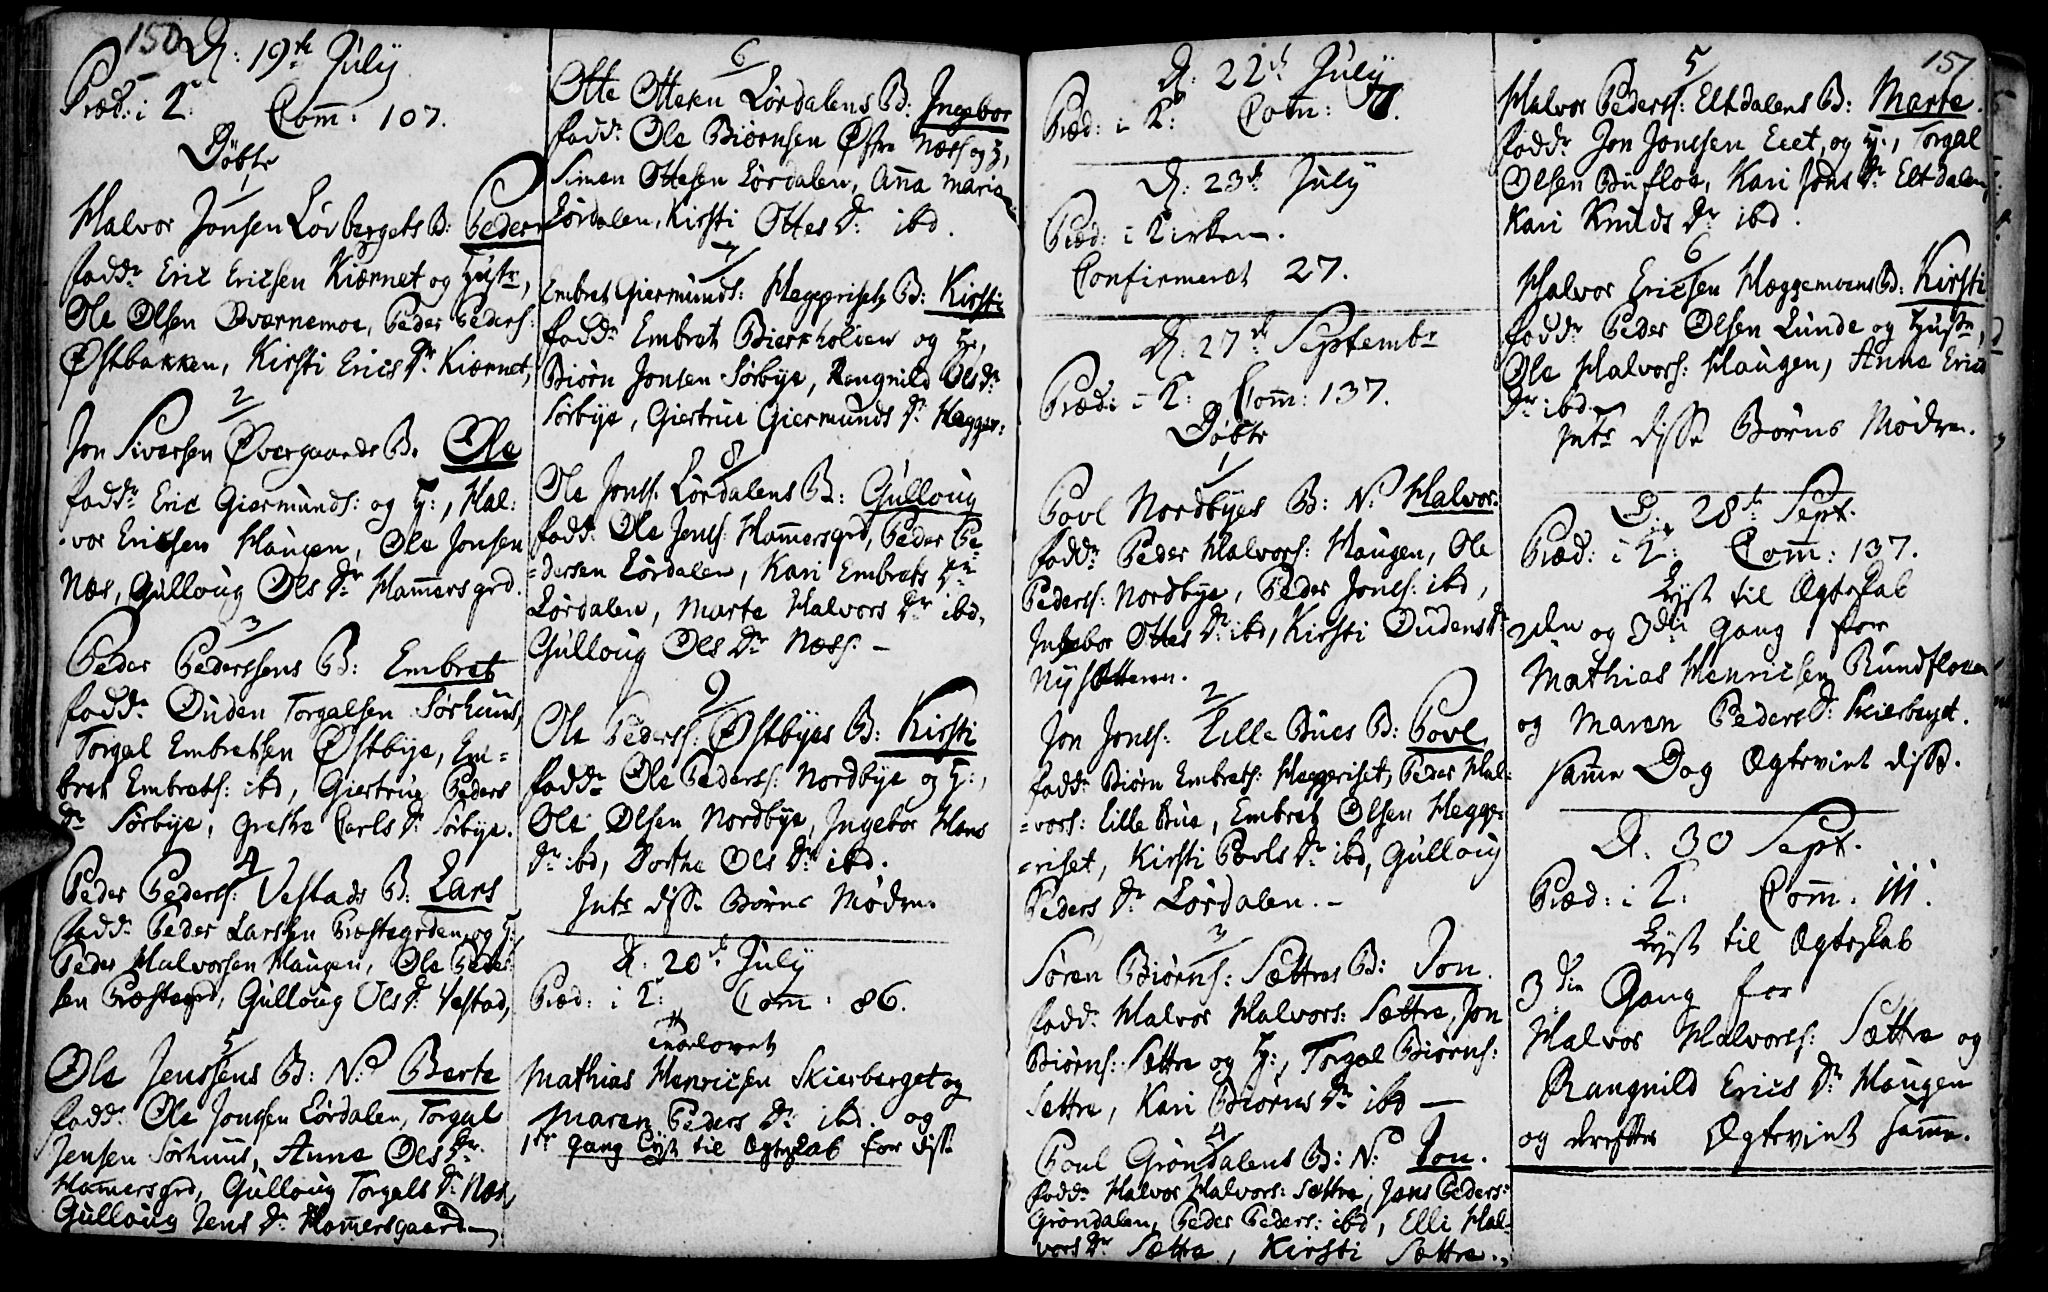 150
D: 19de July
Præd: i K: Com̄: 107.
Döbte
1
Halvor Jonsen Lövbergets B: Peder
fadd: Eric Ericsen Kiærnet og Hustr,
Ole Olsen Qværnemoe, Peder Peders:
Östbakken, Kirsti Erics Dr Kiærnet,
2
Jon Siversen Övergaards B: Ole
fadd: Eric Giermunds: og H:, Hal:
vor Ericsen Haugen, Ole Jonsen
Næs, Gulloug Ols Dr Ham̄ersgrd.
3
Peder Pederssens B: Embret
fadd: Ouden Torgalsen Sörhuus,
Torgal Embretsen Östbye, Em=
bret Embrets: ibd, Giertrug Peders
Dr Sörbye, Grethe Carls Dr Sörbye.
4
Peder Peders: Vestads B: Lars
fadd: Peder Larssen Præstegrden, og H:
Peder Halvorsen Haugen, Ole Peder
sen Præstegrd, Gulloug Ols Dr Vestad,
5
Ole Jenssens B: N: Berte
fadd: Ole Jonssen Lördalen, Torgal
Jensen Sörhuus, Anne Ols Dr
Ham̄ersgrd, Gulloug Torgals Dr Næs,
Gulloug Jens Dr Ham̄ersgaard
6
Otte Ottesen Lördalens B: Ingebor
fadd: Ole Biörnsen Öfre Næss og H,
Simen Ottesen Lördalen, Anna Maria
Lördalen, Kirsti Ottes Dr ibd.
7
Embret Giermunds: Heggerisets B: Kirsti
fadd: Embret Bierkholien og H:,
Biörn Jonsen Sörbye, Rangnild Ols Dr
Sörbye, Giertrue Giermunds Dr Hegger:
8
Ole Jonss: Lördalens B: Gulloug
fadd: Ole Jenss: Ham̄ersgrd, Peder Pe=
=dersen Lördalen, Kari Embrets
Lördalen, Marte Halvors Dr ibd,
Gulloug Ols Dr Næss. –
9
Ole Peders: Östbyes B: Kirsti
fadd: Ole Peders: Nordbye og H:,
Ole Olsen Nordbye, Ingebor Hans
Dr ibd, Dorthe Ols Dr ibd.
Intr disse Börns Mödre.
D: 20de July
Præd: i K: Com̄: 86.
Trolovet
Mathias Henricsen Skierberget og
Maren Peders Dr ibd. og
1te Gang Lyst til Ægteskab for disse
D: 22de July
Præd: i K: Com̄:
D: 23de July
Præd: i Kirken.
Confirmeret 27.
D: 27de Septembr
Præd: i K: Com̄: 137.
Döbte
1
Povl Nordbyes B: N: Halvor.
fadd: Peder Halvors: Haugen, Ole
Peders: Nordbye, Peder Jonss: ibd,
Ingebor Ottes Dr ibd, Kirsti Oudens Dr
Nysetteren.
2
Jon Jonss: Lille Bues B: Povl
fadd: Biörn Embrets: Heggeriset, Peder Hal=
=vors: Lille Bue, Embret Olsen Hegge=
=riset, Kirsti Povls Dr ibd, Gulloug
Peders Dr Lördalen. –
3
Sören Biörns: Sættres B: Jon.
fadd: Halvor Halvors: Sættre, Jon
Biörns: Sættre og H:, Torgal Biörns:
Sættre, Kari Biörns Dr ibd –
4
Poul Gröndalens B: N: Jon.
fadd: Halvor Halvors: Sættre, Jens Peders:
Gröndalen, Peder Peders: ibd, Elli Hal=
vors Dr Sættre, Kirsti Sættre.
151
5
Halvor Peders: Eltdalens B: Marte.
fadd: Jon Jonssen Eeet, og H:, Torgal
Olsen Bufloe, Kari Jons Dr Eltdalen,
Kari Knuds Dr ibd.
6
Halvor Ericsen Hæggemoens B: Kirsti
fadd: Peder Olsen Lunde og Hustr,
Ole Halvors: Haugen, Anne Erics
Dr ibd.
Intr disse Börns Mödre.
D: 28de Sept.
Præd: i K: Com̄: 137.
Lyst til Ægteskab
2den og 3die Gang for
Mathias Henricsen Rundfloen
og Maren Peders Dr Skierberget.
sam̄e Dag Ægteviet disse.
D: 30 Sept.
Præd: i K: Com̄: 111.
Lyst til Ægteskab
3die Gang for
Halvor Halvors: Sættre og
Rangnild Erics Dr Haugen
og derefter Ægteviet sam̄e.